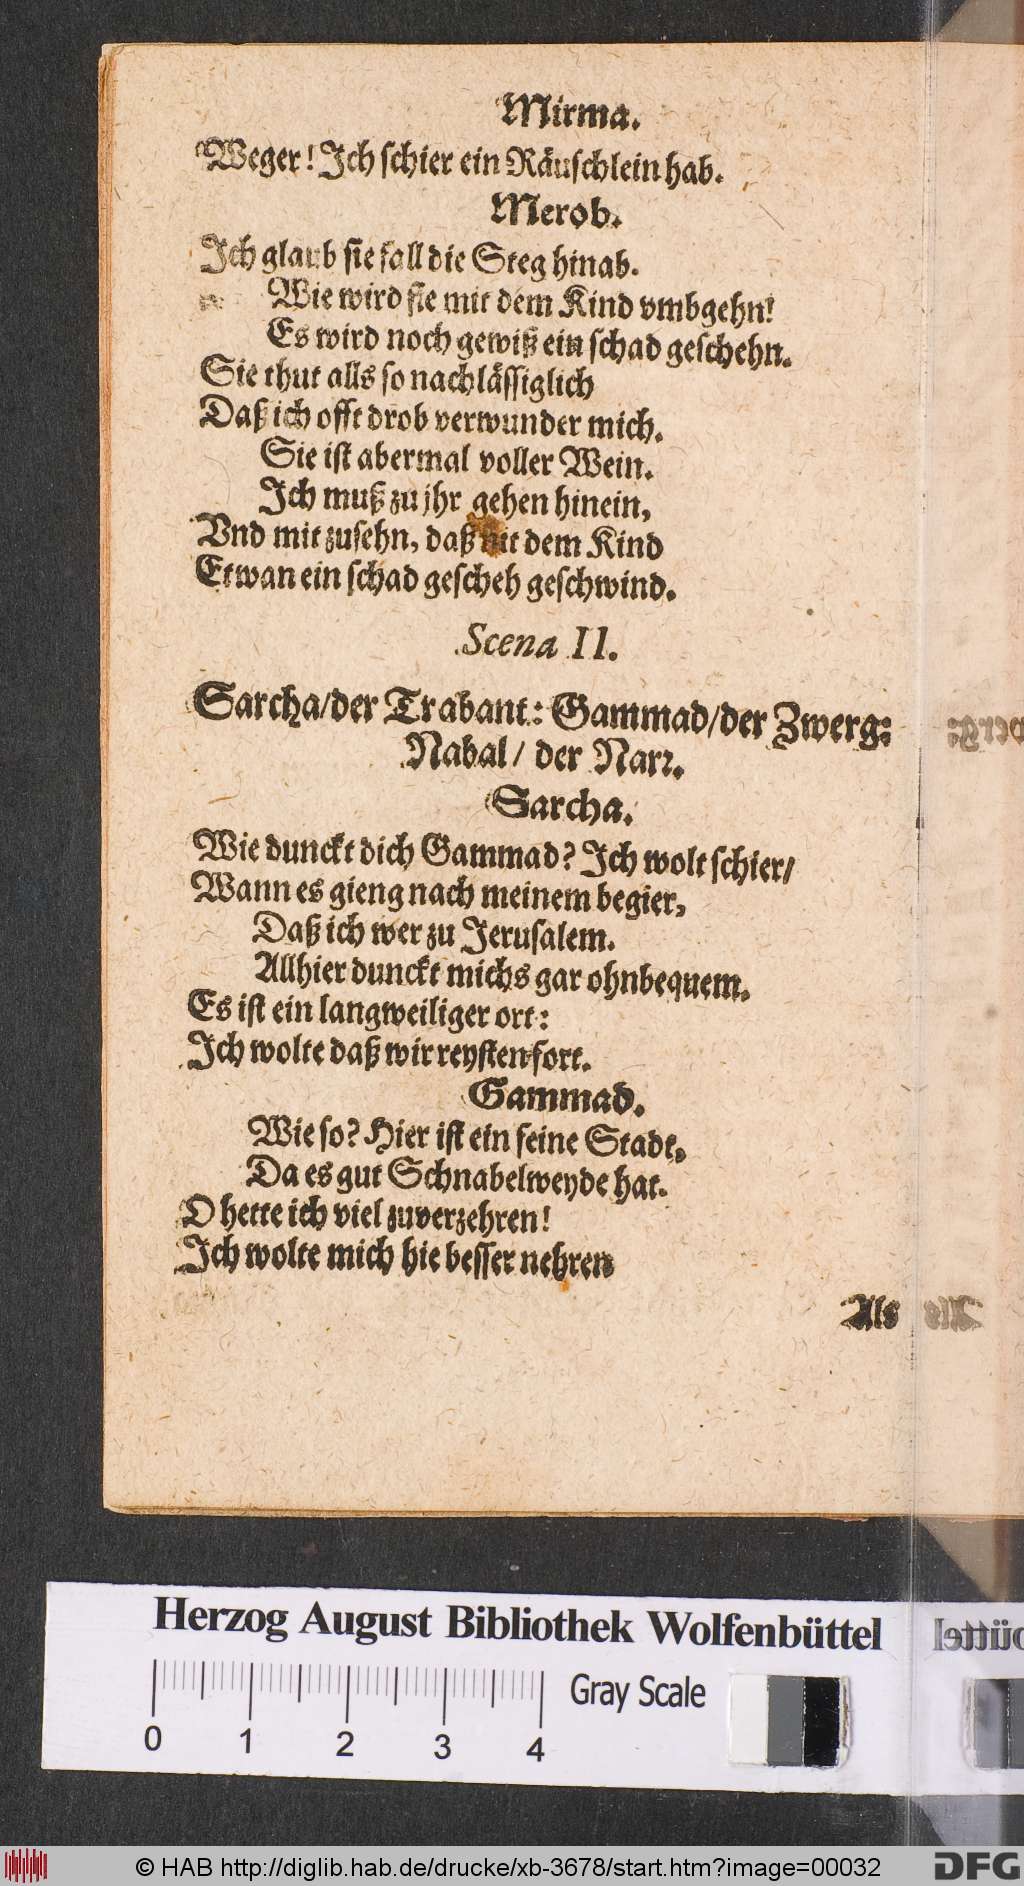 Mirma.
Weger! Ich schier ein Räuschlein hab.
Merob.
Ich glaub sie fall die Steg hinab.
Wie wird sie mit dem Kind vmbgehn!
Es wird noch gewiß ein schad geschehn.
Sie thut alls so nachlässiglich
Daß ich offt drob verwunder mich.
Sie ist abermal voller Wein.
Ich muß zu jhr gehen hinein,
Vnd mit zusehn, daß mit dem Kind
Etwan ein schad gescheh geschwind.
Scena II.
Sarcha/der Trabant: Gammad/der Zwerg:
Nabal/ der Narr.
Sarcha.
Wie dunckt dich Gammad? Ich wolt schier/
Wann es gieng nach meinem begier,
Daß ich wer zu Jerusalem.
Allhier dunckt michs gar ohnbequem.
Es ist ein langweiliger ort:
Ich wolte daß wir reysten fort.
Gammad.
Wie so? Hier ist ein feine Stadt,
Da es gut Schnabelweyde hat.
O hette ich viel zuverzehren!
Ich wolte mich hie besser nehren
Als
Herzog August Bibliothek Wolfenbüttel
Gray Scale
0 1 2 3 4
© HAB http://diglib.hab.de/drucke/xb-3678/start.htm?image=00032
DFG